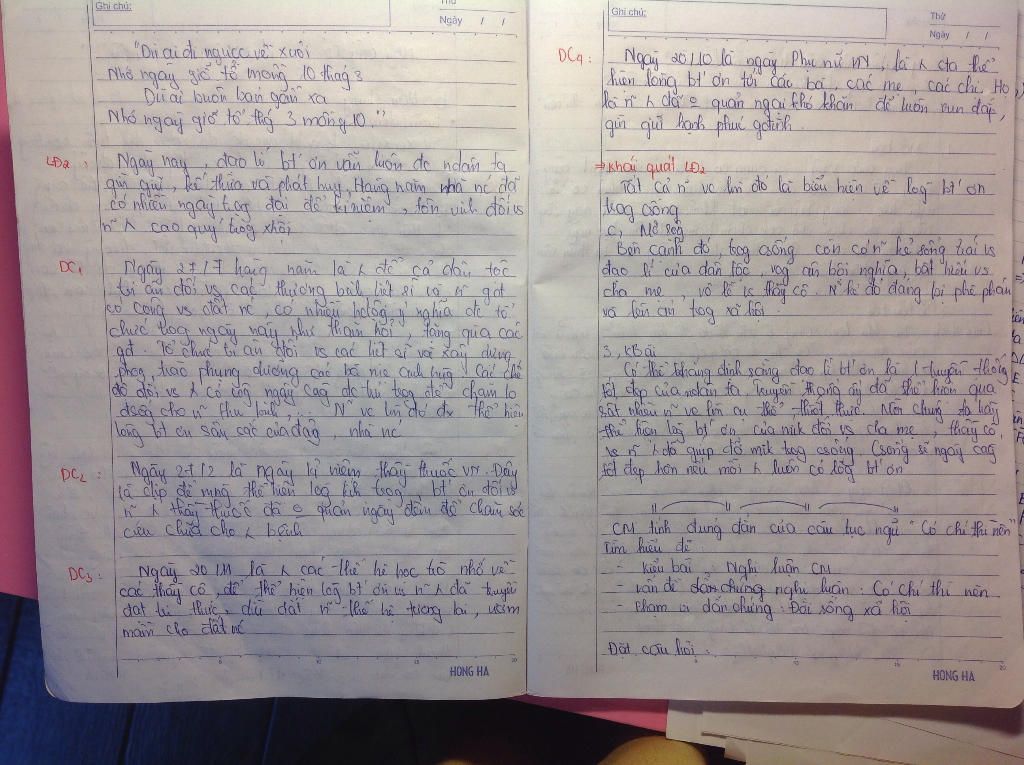 Ghi chú:
Thứ
Ngày / /
"Dù ai đi ngược về xuôi
Nhớ ngày giỗ tổ mồng 10 thág 3
Dù ai buôn bán gần xa
Nhớ ngày giỗ tổ thg 3 mồng 10."
LĐ2: Ngày nay, đạo lí bt ơn vẫn luôn đc ndân ta
gìn giữ, kế thừa và phát huy, Hàng năm nhà nc đã
có nhiều ngày trọg đại để kỉ niệm, tôn vinh đối vs
~ ⅄ cao quý trog xhội
DC1 Ngày 27/7 hàng năm là để cả dân tộc
tri ân đối vs các thương binh liệt sĩ và
có công vs đất nc, có nhiều hđộg ý nghĩa đc tổ
chức trog ngày này như thăm hỏi, tặng quà các
gđ. Tổ chức tri ân đối vs các liệt sĩ và xây dựng
phog trào phụng dưỡng các bà mẹ anh hùng. Các chế
độ đối vs có côg ngày càg đc chú trọg để chăm lo
đsốg cho thươg binh.... vc làm đó đã thể hiện
lòng bt ơn sâu sắc của đảg, nhà nc
DC2: Ngày 27/2 là ngày kỷ niệm thầy thuốc VN. Đây
là dịp để mng thể hiện lòg kíh trọg, bt ơn đối vs
thầy thuốc đã quản ngày đêm để chăm sóc
cứu chữa cho bệnh
DC3: Ngày 20/11 là các thế hệ học trò nhớ về
các thầy cô, để thể hiện lòg bt ơn vs đã truyền
đạt tri thức, dìu dắt thế hệ tương lai, ươm
mầm cho đất nc
HONG HA
Ghi chú:
Thứ
Ngày / /
DC4: Ngày 20/10 là ngày Phụ nữ VN, là ta thể
hiện lòng bt ơn tới các bà, các mẹ, các chị. Họ
là đã quản ngại khó khăn để luôn vun đắp,
gìn giữ hạnh phúc gđình.
⇒ Khái quát LĐ2
Tất cả vc làm đó là biểu hiện về lòg bt ơn
trog csống
c, Mở rộg
Bên cạnh đó, trog csống còn có kẻ sống trái vs
đạo lí của dân tộc, vog ân bội nghĩa, bất hiếu vs
cha mẹ, vô lễ vs thầy cô. kẻ đó đáng bị phê phán
và lên án trog xã hội.
3, KBài
Có thể khẳng định sống đạo lí bt ơn là 1 truyền thống
tốt đẹp của ndân ta. Truyền thống ấy đã thể hiện qua
rất nhiều vc làm cụ thể thiết thực. Nên chúng ta hãy
thể hiện lòg bt ơn của mik đối vs cha mẹ, thầy cô,
vs đó giúp đỡ mik trog csống. Csống sẽ ngày càg
tốt đẹp hơn nếu mỗi luôn có lòg bt ơn
CM tính đúng đắn của câu tục ngữ "Có chí thì nên"
Tìm hiểu đề:
- kiểu bài: Nghị luận CM
- vấn đề nghị luận: Có chí thì nên
- phạm vi dẫn chứng: Đời sống xã hội
Đặt câu hỏi:
HONG HA